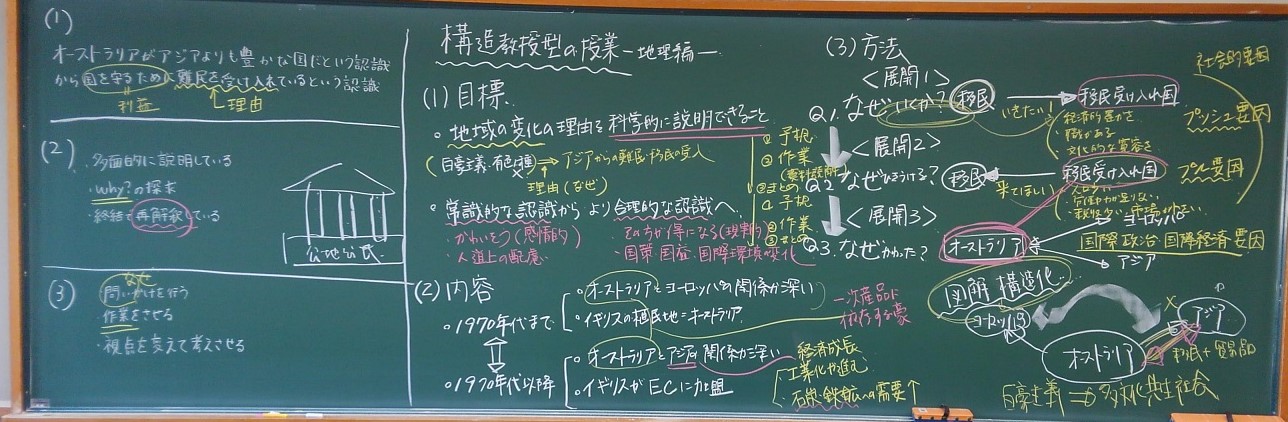 (1)
オーストラリアがアジアよりも豊かな国だという認識
から国を守るために難民を受け入れているという認識
利益
理由
(2)
・多面的に説明している
・why?の探求
・終結で再解釈している
公地公民
③
なぜ
問いかけを行う
作業をさせる
・視点を変えて考えさせる
構造教授型の授業 ー地理編ー
(1)目標
・地域の変化の理由を科学的に説明できること
アジアからの難民・移民の受入
理由(なぜ)
・常識的な認識からより合理的な認識へ
・かわいそう(感情的)
・人道上の配慮
・国策 国益 国際環境の変化
①予想
②作業
③まとめ
①予想
②作業
③まとめ
(2)内容
・1970年代まで
・オーストラリアとヨーロッパの関係が深い
・イギリスの植民地=オーストラリア
一次産品に
依存する豪
・1970年代以降
・オーストラリアとアジアの関係が深い
・イギリスがECに加盟
経済成長
工業化や進む
・石炭・鉄鉱への需要↑
(3)方法
<展開1>
Q1.なぜいくか?
移民
いきたい!
移民受け入れ国
・経済的豊かさ
・職がある
・文化的な寛容さ
社会的要因
プッシュ要因
<展開2>
Q2 なぜひきうける?
移民
来てほしい
移民受け入れ国
プル要因
<展開3>
Q3.なぜかわった?
オーストラリア
ヨーロッパ
アジア
国際政治・国際経済要因
図解 構造化
ヨーロッパ
アジア
オーストラリア
移民+貿易品
白豪主義⇒多文化共生社会